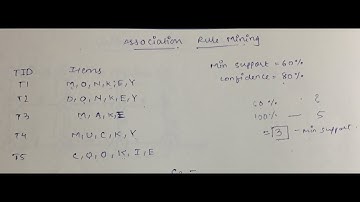 Association Rule Mining
TID Items
T1 M, O, N, K, E, Y
T2 D, O, N, K, E, Y
T3 M, A, K, E
T4 M, U, C, K, Y
T5 C, O, O, K, I, E
Min support = 60%
Confidence = 80%
60% ?
100% — 5
= 3 - min support